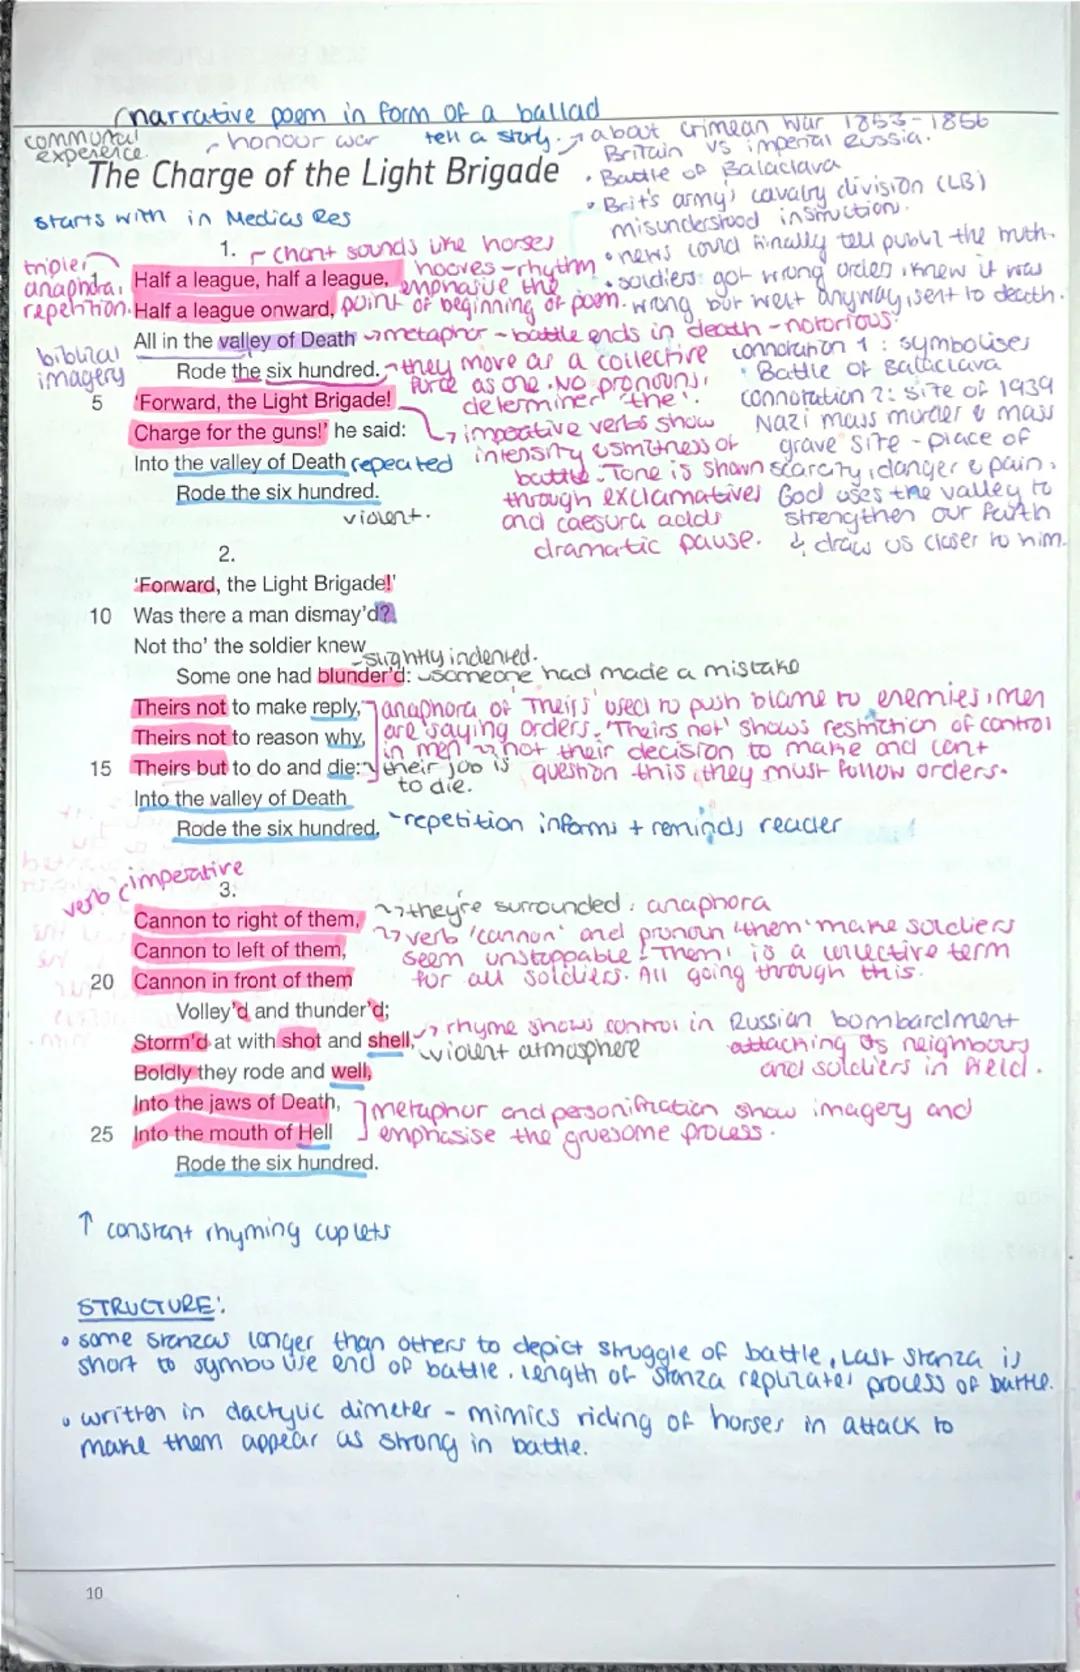 narrative poem in form of a ballad
communal experience.
honour war
tell a story.
about Crimean War 1853-1856
Britain vs imperial Russia.
The Charge of the Light Brigade
• Battle of Balaclava
• Brit's army's cavalry division (LB)
misunderstood instruction.
starts with in Medias Res
• news could finally tell public the truth.
1.
chant sounds like horses
hooves - rhythm
emphasise the
point of beginning of poem.
• soldiers got wrong orders, knew it was
wrong but went anyway, sent to death.
triple,
anaphora,
repetition.
1 Half a league, half a league,
Half a league onward,
All in the valley of Death
metaphor - battle ends in death - notorious.
biblical
imagery
Rode the six hundred.
they move as a collective
force as one. No pronouns,
determiner 'the'.
connotation 1: symbolises
• Battle of Balaclava
connotation 2: site of 1939
Nazi mass murder & mass
grave site - place of
scarcity, danger & pain.
God uses the valley to
strengthen our faith
& draw us closer to him.
5 'Forward, the Light Brigade!
Charge for the guns!' he said:
imperative verbs show
intensity & smitness of
battle. Tone is shown
through exclamatives
and caesura adds
dramatic pause.
Into the valley of Death
repeated
Rode the six hundred.
violent.
2.
'Forward, the Light Brigade!'
10 Was there a man dismay'd?
Not tho' the soldier knew
slightly indented.
Some one had blunder'd:
someone had made a mistake
Theirs not to make reply,
Theirs not to reason why,
15 Theirs but to do and die:
anaphora of 'Theirs' used to push blame to enemies, men
are saying orders. 'Theirs not' shows restriction of control
in men not their decision to make and cant
question this, they must follow orders.
their job is
to die.
Into the valley of Death
Rode the six hundred.
repetition informs + reminds reader
verb (imperative
3.
Cannon to right of them,
Cannon to left of them,
20 Cannon in front of them
they're surrounded: anaphora
verb 'cannon' and pronoun 'them' make soldiers
seem unstoppable. 'Them' is a collective term
for all soldiers. All going through this.
Volley'd and thunder'd;
Storm'd at with shot and shell,
rhyme shows control in Russian bombardment
attacking its neighbours
and soldiers in field.
violent atmosphere
Boldly they rode and well,
Into the jaws of Death,
25 Into the mouth of Hell
metaphor and personification show imagery and
emphasise the gruesome process.
Rode the six hundred.
↑ constant rhyming cuplets
STRUCTURE:
• some stanzas longer than others to depict struggle of battle, last stanza is
short to symbolise end of battle. length of stanza replicates process of battle.
• written in dactylic dimeter - mimics riding of horses in attack to
make them appear as strong in battle.
10